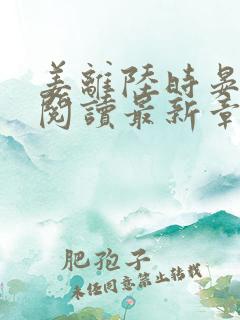 姜離陸時晏
閱讀最新章
肥孢子
未任同意禁止转载